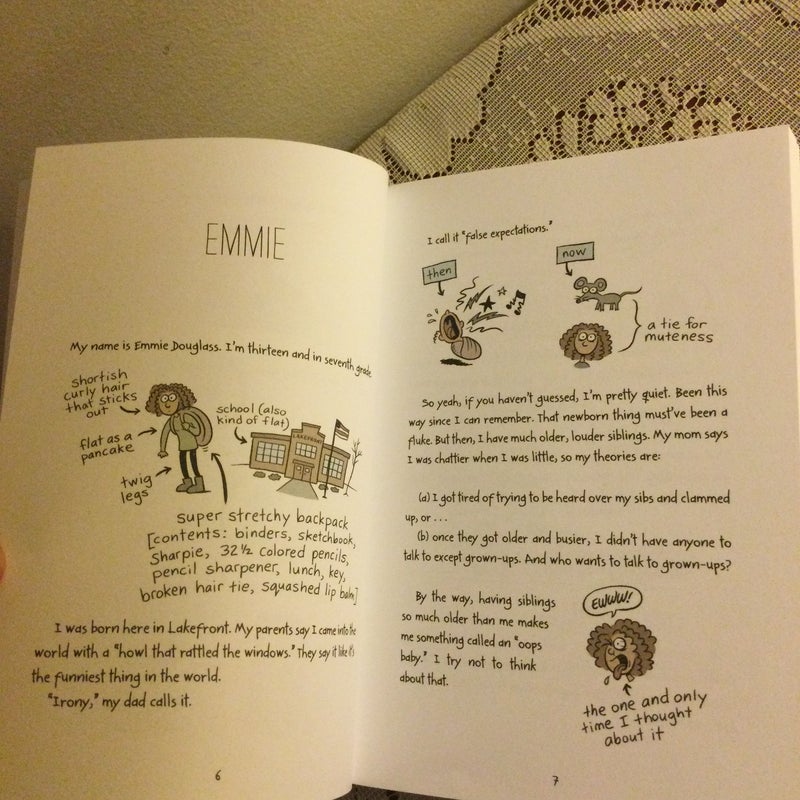 EMMIE
My name is Emmie Douglass. I'm thirteen and in seventh grade.
shortish
curly hair
that sticks
out
flat as a
pancake
twig
legs
school (also
kind of flat)
LAKEFRONT
super stretchy backpack
[contents: binders, sketchbook,
Sharpie, 32 ½ colored pencils,
pencil sharpener, lunch, key,
broken hair tie, squashed lip balm]
I was born here in Lakefront. My parents say I came into the
world with a "howl that rattled the windows." They say it like it's
the funniest thing in the world.
"Irony," my dad calls it.
6
I call it "false expectations."
then
now
a tie for
muteness
So yeah, if you haven't guessed, I'm pretty quiet. Been this
way since I can remember. That newborn thing must've been a
fluke. But then, I have much older, louder siblings. My mom says
I was chattier when I was little, so my theories are:
(a) I got tired of trying to be heard over my sibs and clammed
up, or . . .
(b) once they got older and busier, I didn't have anyone to
talk to except grown-ups. And who wants to talk to grown-ups?
By the way, having siblings
so much older than me makes
me something called an "oops
baby." I try not to think
about that.
EWWW!
the one and only
time I thought
about it
7